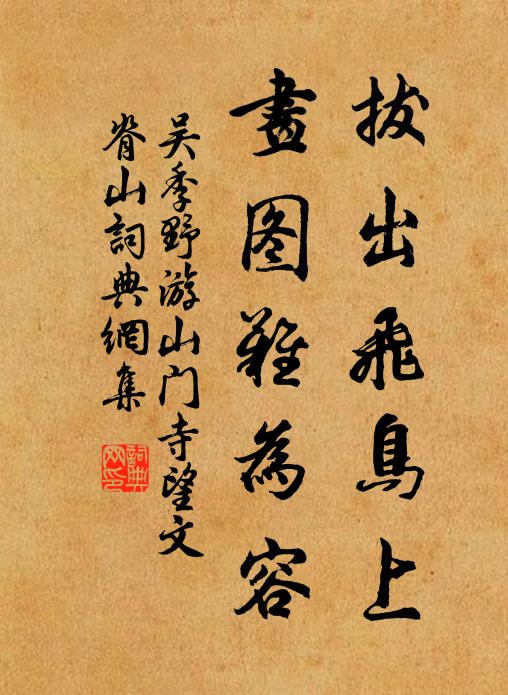 拔出飛鳥上
畫图難為容
吴季野游山门寺望文
脊山詞典網集
詞典網印